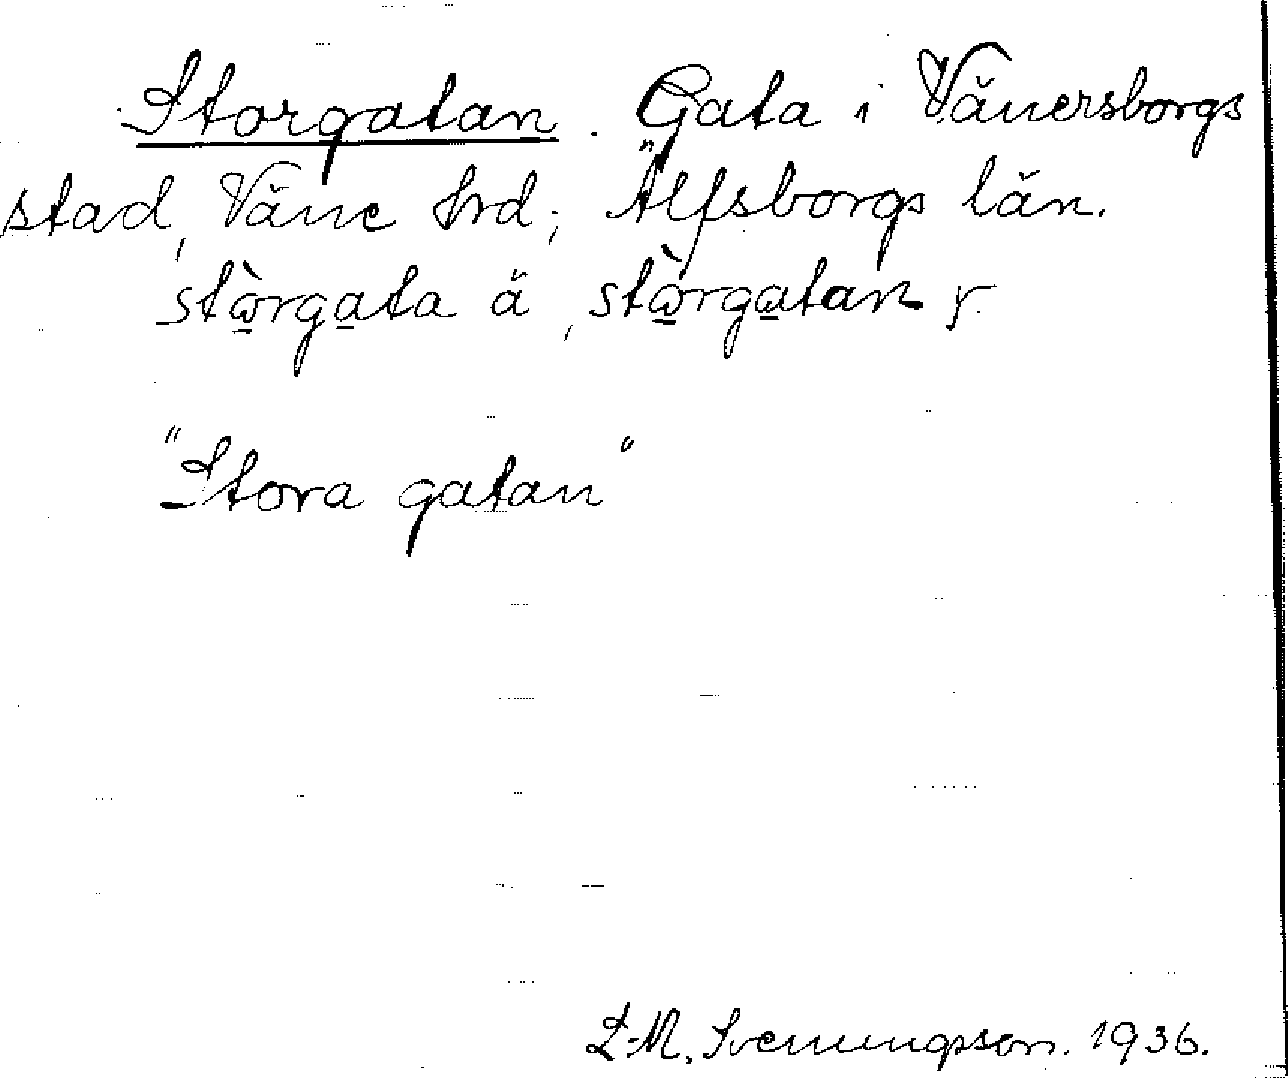 Storgatan. Gata i Vänersborgs
stad, Väne hrd; Älfsborgs län.
stòrgata ä, stòrgatan y.
"Stora gatan"
L-M. Svenungsson. 1936.